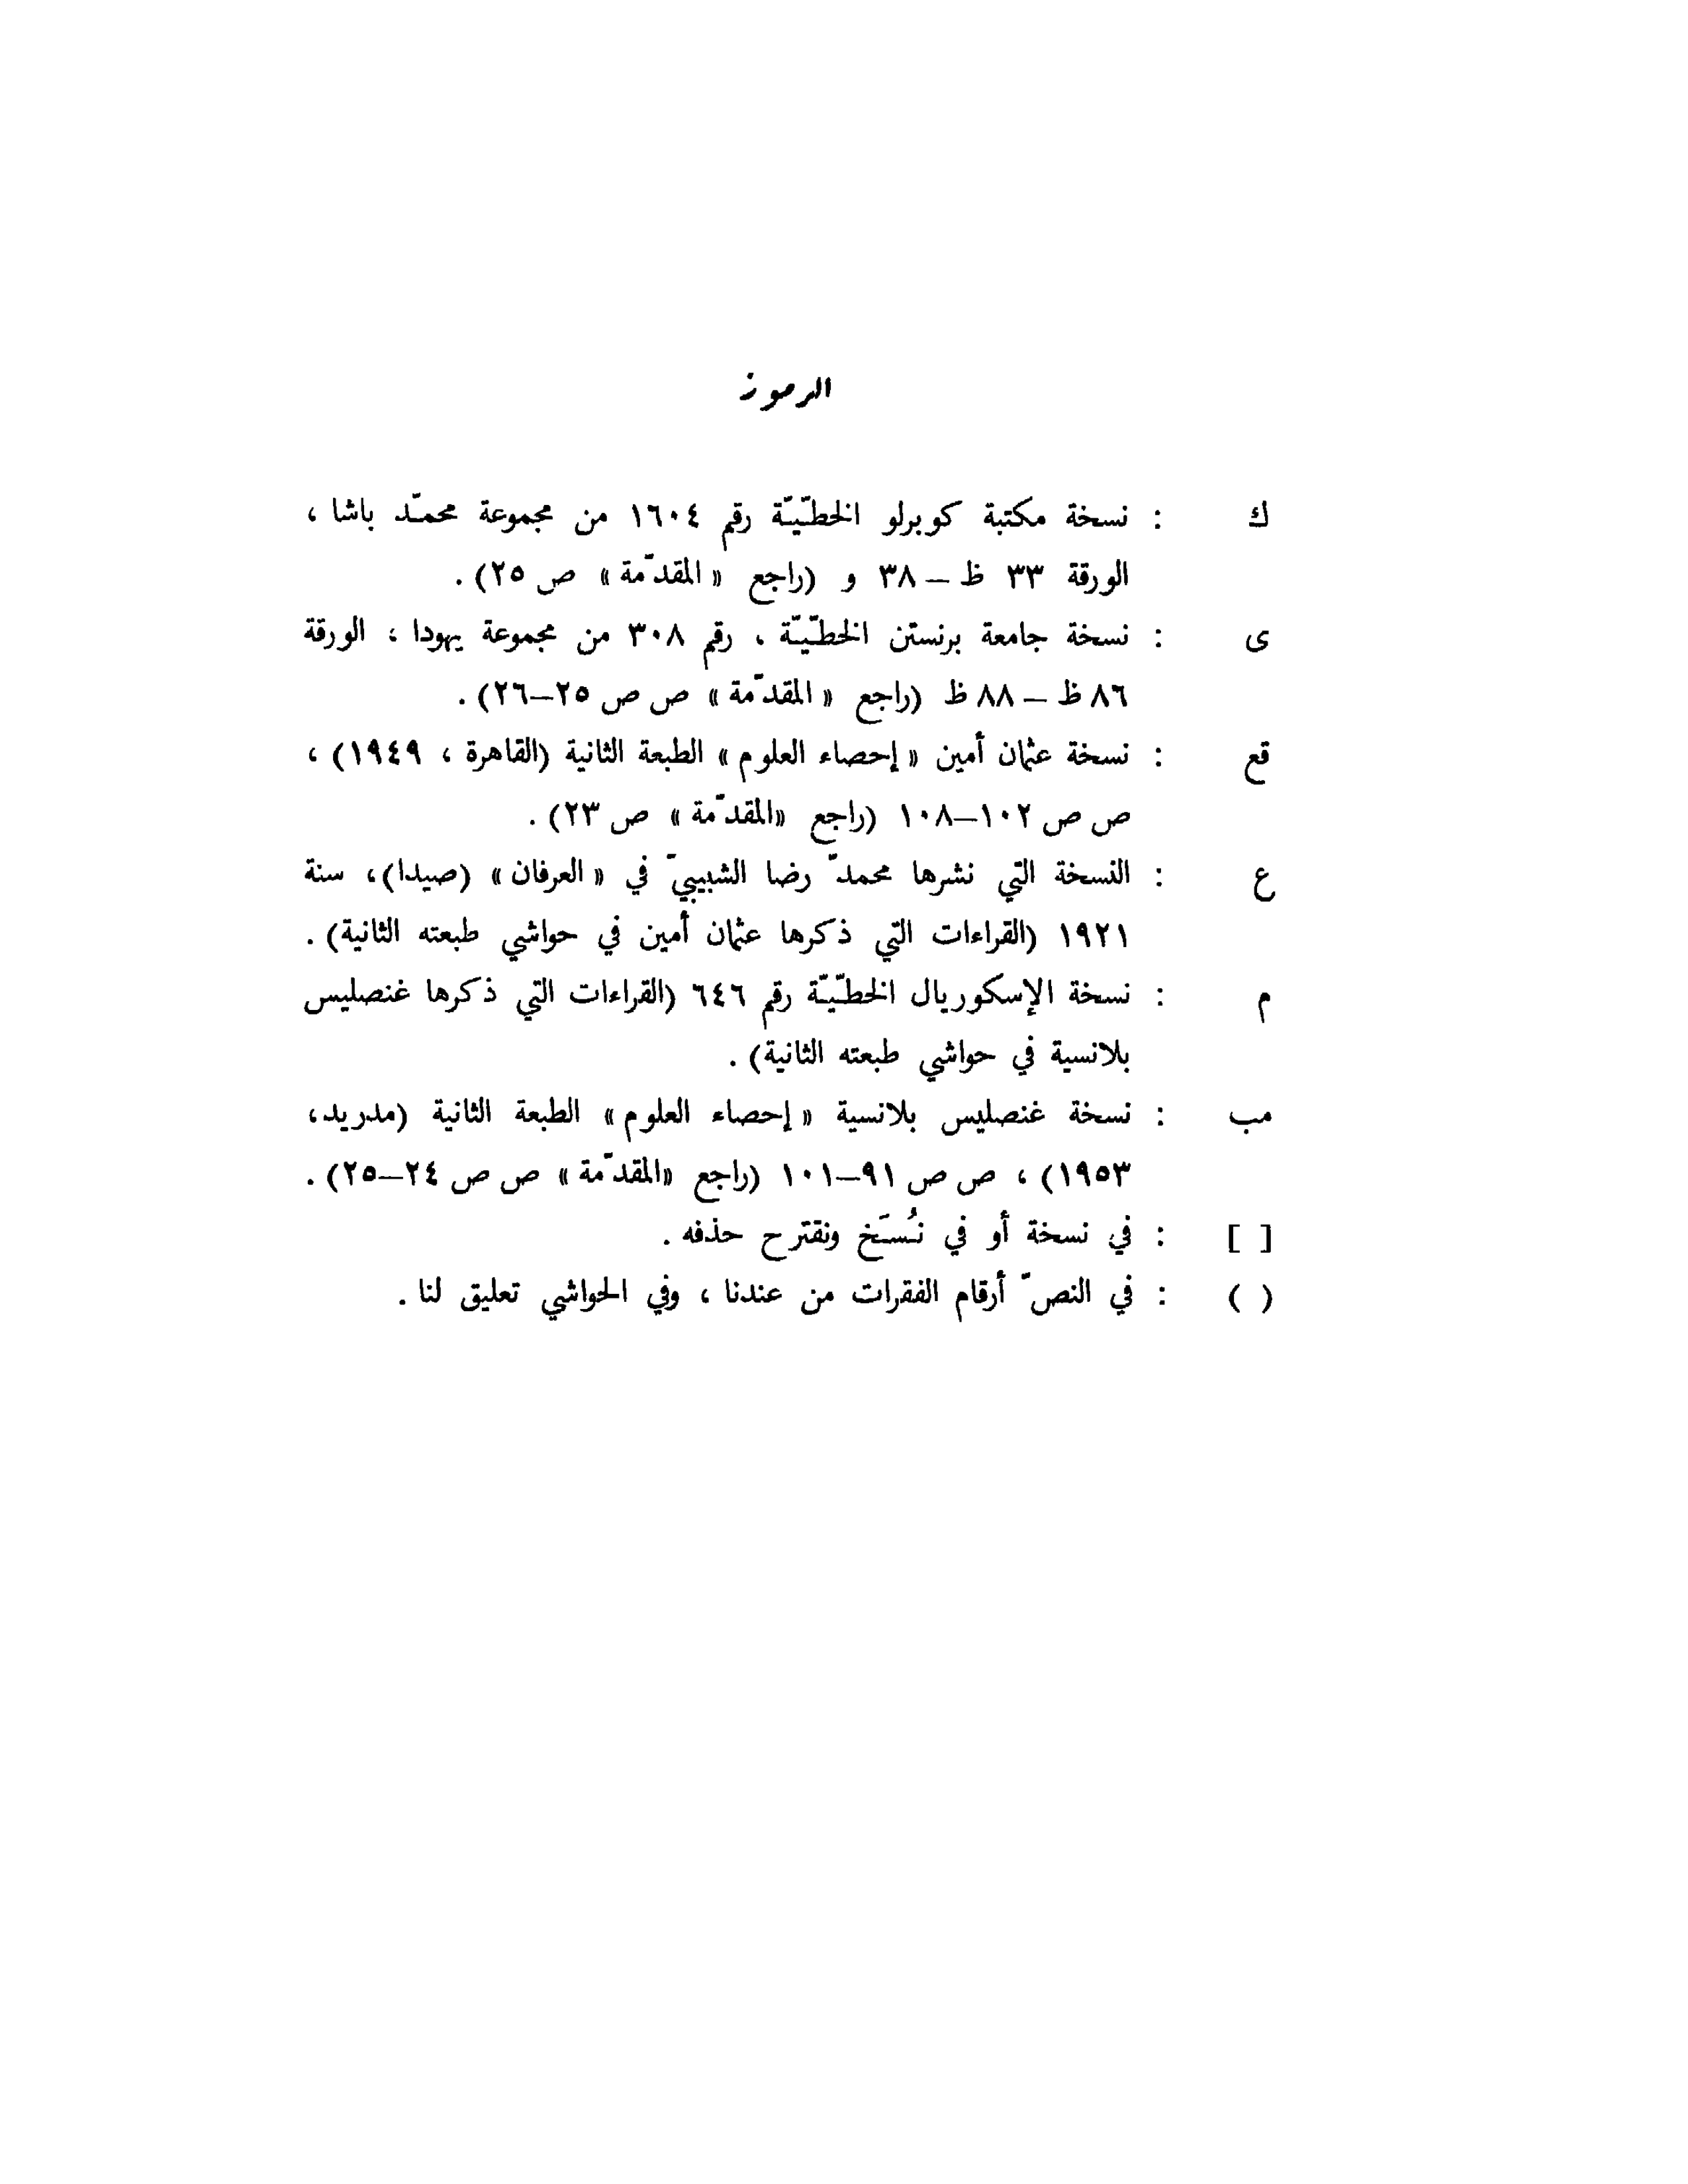 الرموز
ك : نسخة مكتبة كوبرلو الخطّيّة رقم ١٦٠٤ من مجموعة محمّد باشا ،
الورقة ٣٣ ظ – ٣٨ و (راجع « المقدّمة » ص ٢٥) .
ى : نسخة جامعة برنستن الخطّيّة ، رقم ٣٠٨ من مجموعة يهودا ، الورقة
٨٦ ظ – ٨٨ ظ (راجع « المقدّمة » ص ص ٢٥–٢٦) .
قع : نسخة عثمان أمين « إحصاء العلوم » الطبعة الثانية (القاهرة ، ١٩٤٩) ،
ص ص ١٠٢–١٠٨ (راجع «المقدّمة » ص ٢٣) .
ع : النسخة التي نشرها محمدّ رضا الشبيبيّ في « العرفان » (صيدا)، سنة
١٩٢١ (القراءات التي ذكرها عثمان أمين في حواشي طبعته الثانية) .
م : نسخة الإسكوريال الخطّيّة رقم ٦٤٦ (القراءات التي ذكرها غنصليس
بلانسية في حواشي طبعته الثانية) .
مب : نسخة غنصليس بلانسية « إحصاء العلوم » الطبعة الثانية (مدريد،
١٩٥٣) ، ص ص ٩١–١٠١ (راجع «المقدّمة » ص ص ٢٤–٢٥) .
[ ] : في نسخة أو في نُسَخ ونقترح حذفه .
( ) : في النصّ أرقام الفقرات من عندنا ، وفي الحواشي تعليق لنا .